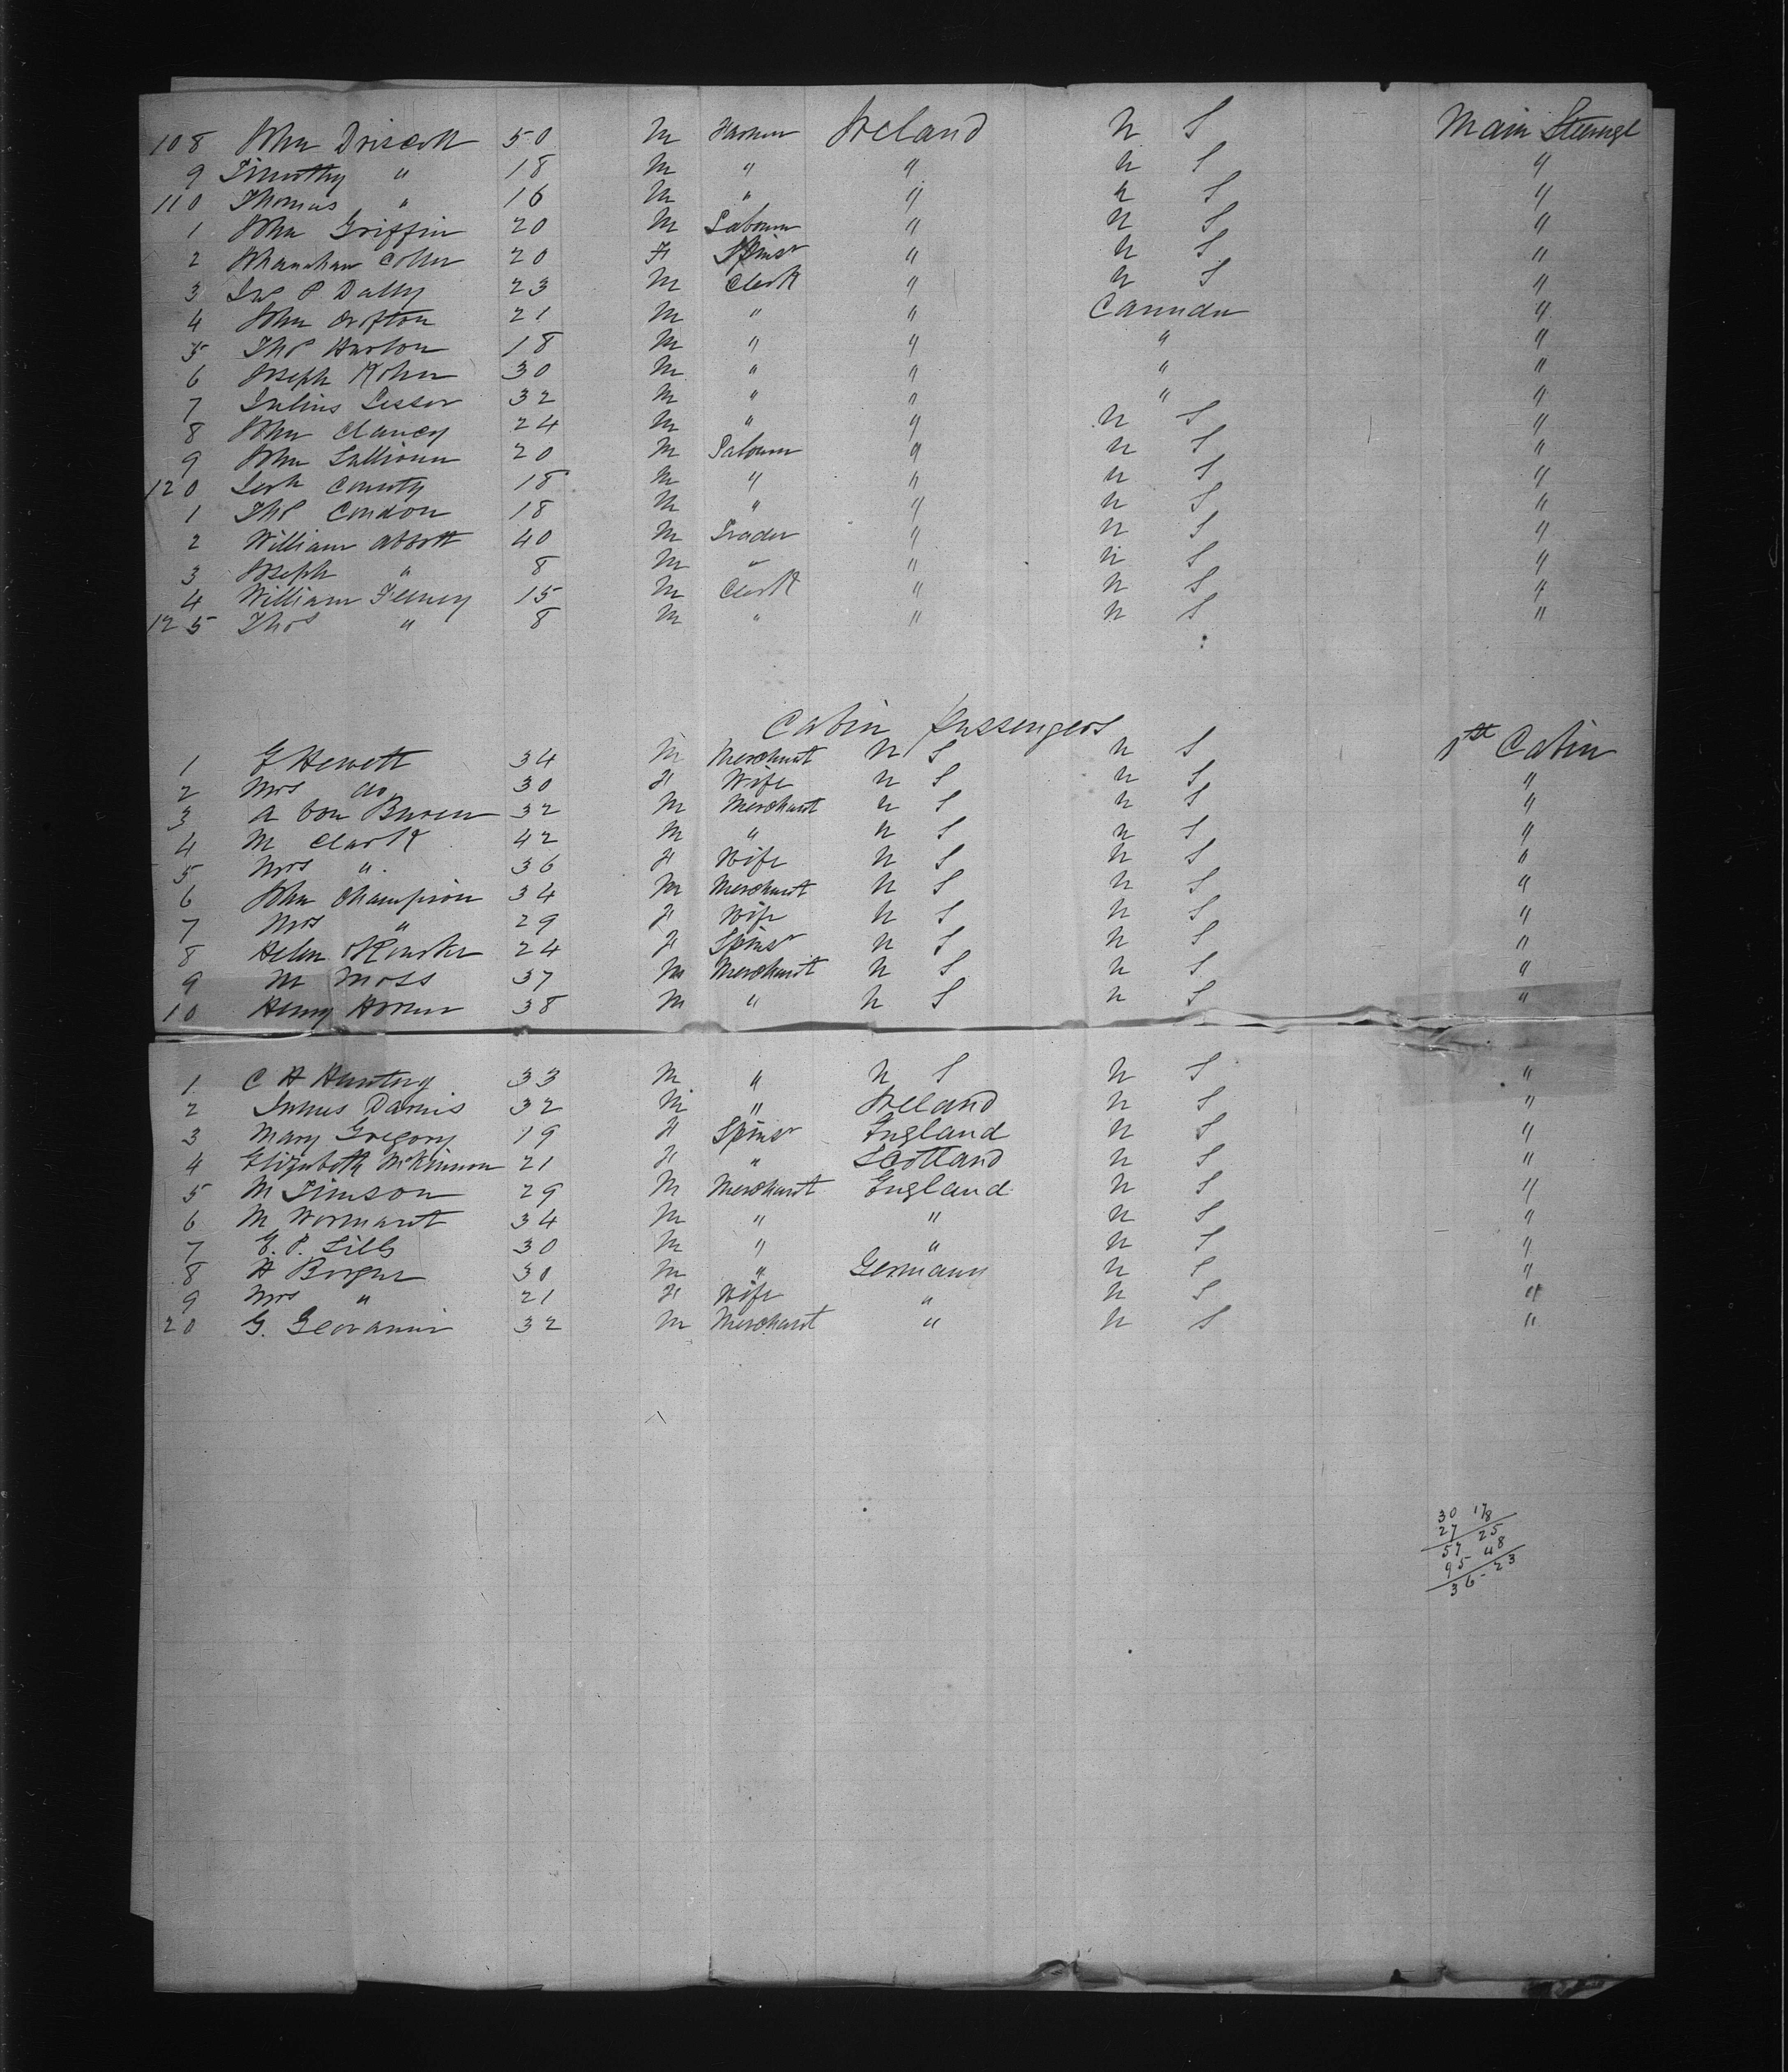 108 John Driscoll 50 M Farmer Ireland U S Main Steerage
9 Timothy " 18 M " " U S "
110 Thomas " 16 M " " U S "
1 John Griffin 20 M Labourer " U S "
2 20 F Spinsr " U S "
3 Jas P Dally 23 M Clerk " U S "
4 John Crofton 21 M " " Cannada "
5 Thos Harton 18 M " " " "
6 Joseph Kohn 30 M " " " "
7 Julius Lesser 32 M " " " "
8 John Clancy 24 M " " U S "
9 John 20 M Labourer " U S "
120 County 18 M " " U S "
1 Thos Condon 18 M " " U S "
2 William Abbott 40 M Trader " U S "
3 Joseph " 8 M " " U S "
4 William Feeney 15 M Clerk " U S "
125 Thos " 8 M " " U S "
Cabin Passengers
1 G Hewett 34 M Merchant U S U S 1st Cabin
2 Mrs do 30 F Wife U S U S "
3 A von Buren 32 M Merchant U S U S "
4 M Clark 42 M " U S U S "
5 Mrs " 36 F Wife U S U S "
6 John Champion 34 M Merchant U S U S "
7 Mrs " 29 F Wife U S U S "
8 Helen 24 F Spinsr U S U S "
9 M Moss 37 M Merchant U S U S "
10 Henry Horner 38 M " U S U S "
1 C H 33 M " U S U S "
2 32 M " Ireland U S "
3 Mary Gregory 19 F Spinsr England U S "
4 Elizabeth McKinnon 21 F " Scotland U S "
5 M Timson 29 M Merchant England U S "
6 M Wormant 34 M " " U S "
7 G. P. Lills 30 M " " U S "
8 H 30 M " Germany U S "
9 Mrs " 21 F Wife " U S "
20 G. 32 M Merchant " U S "
30 178
27 25
57 48
95 23
36